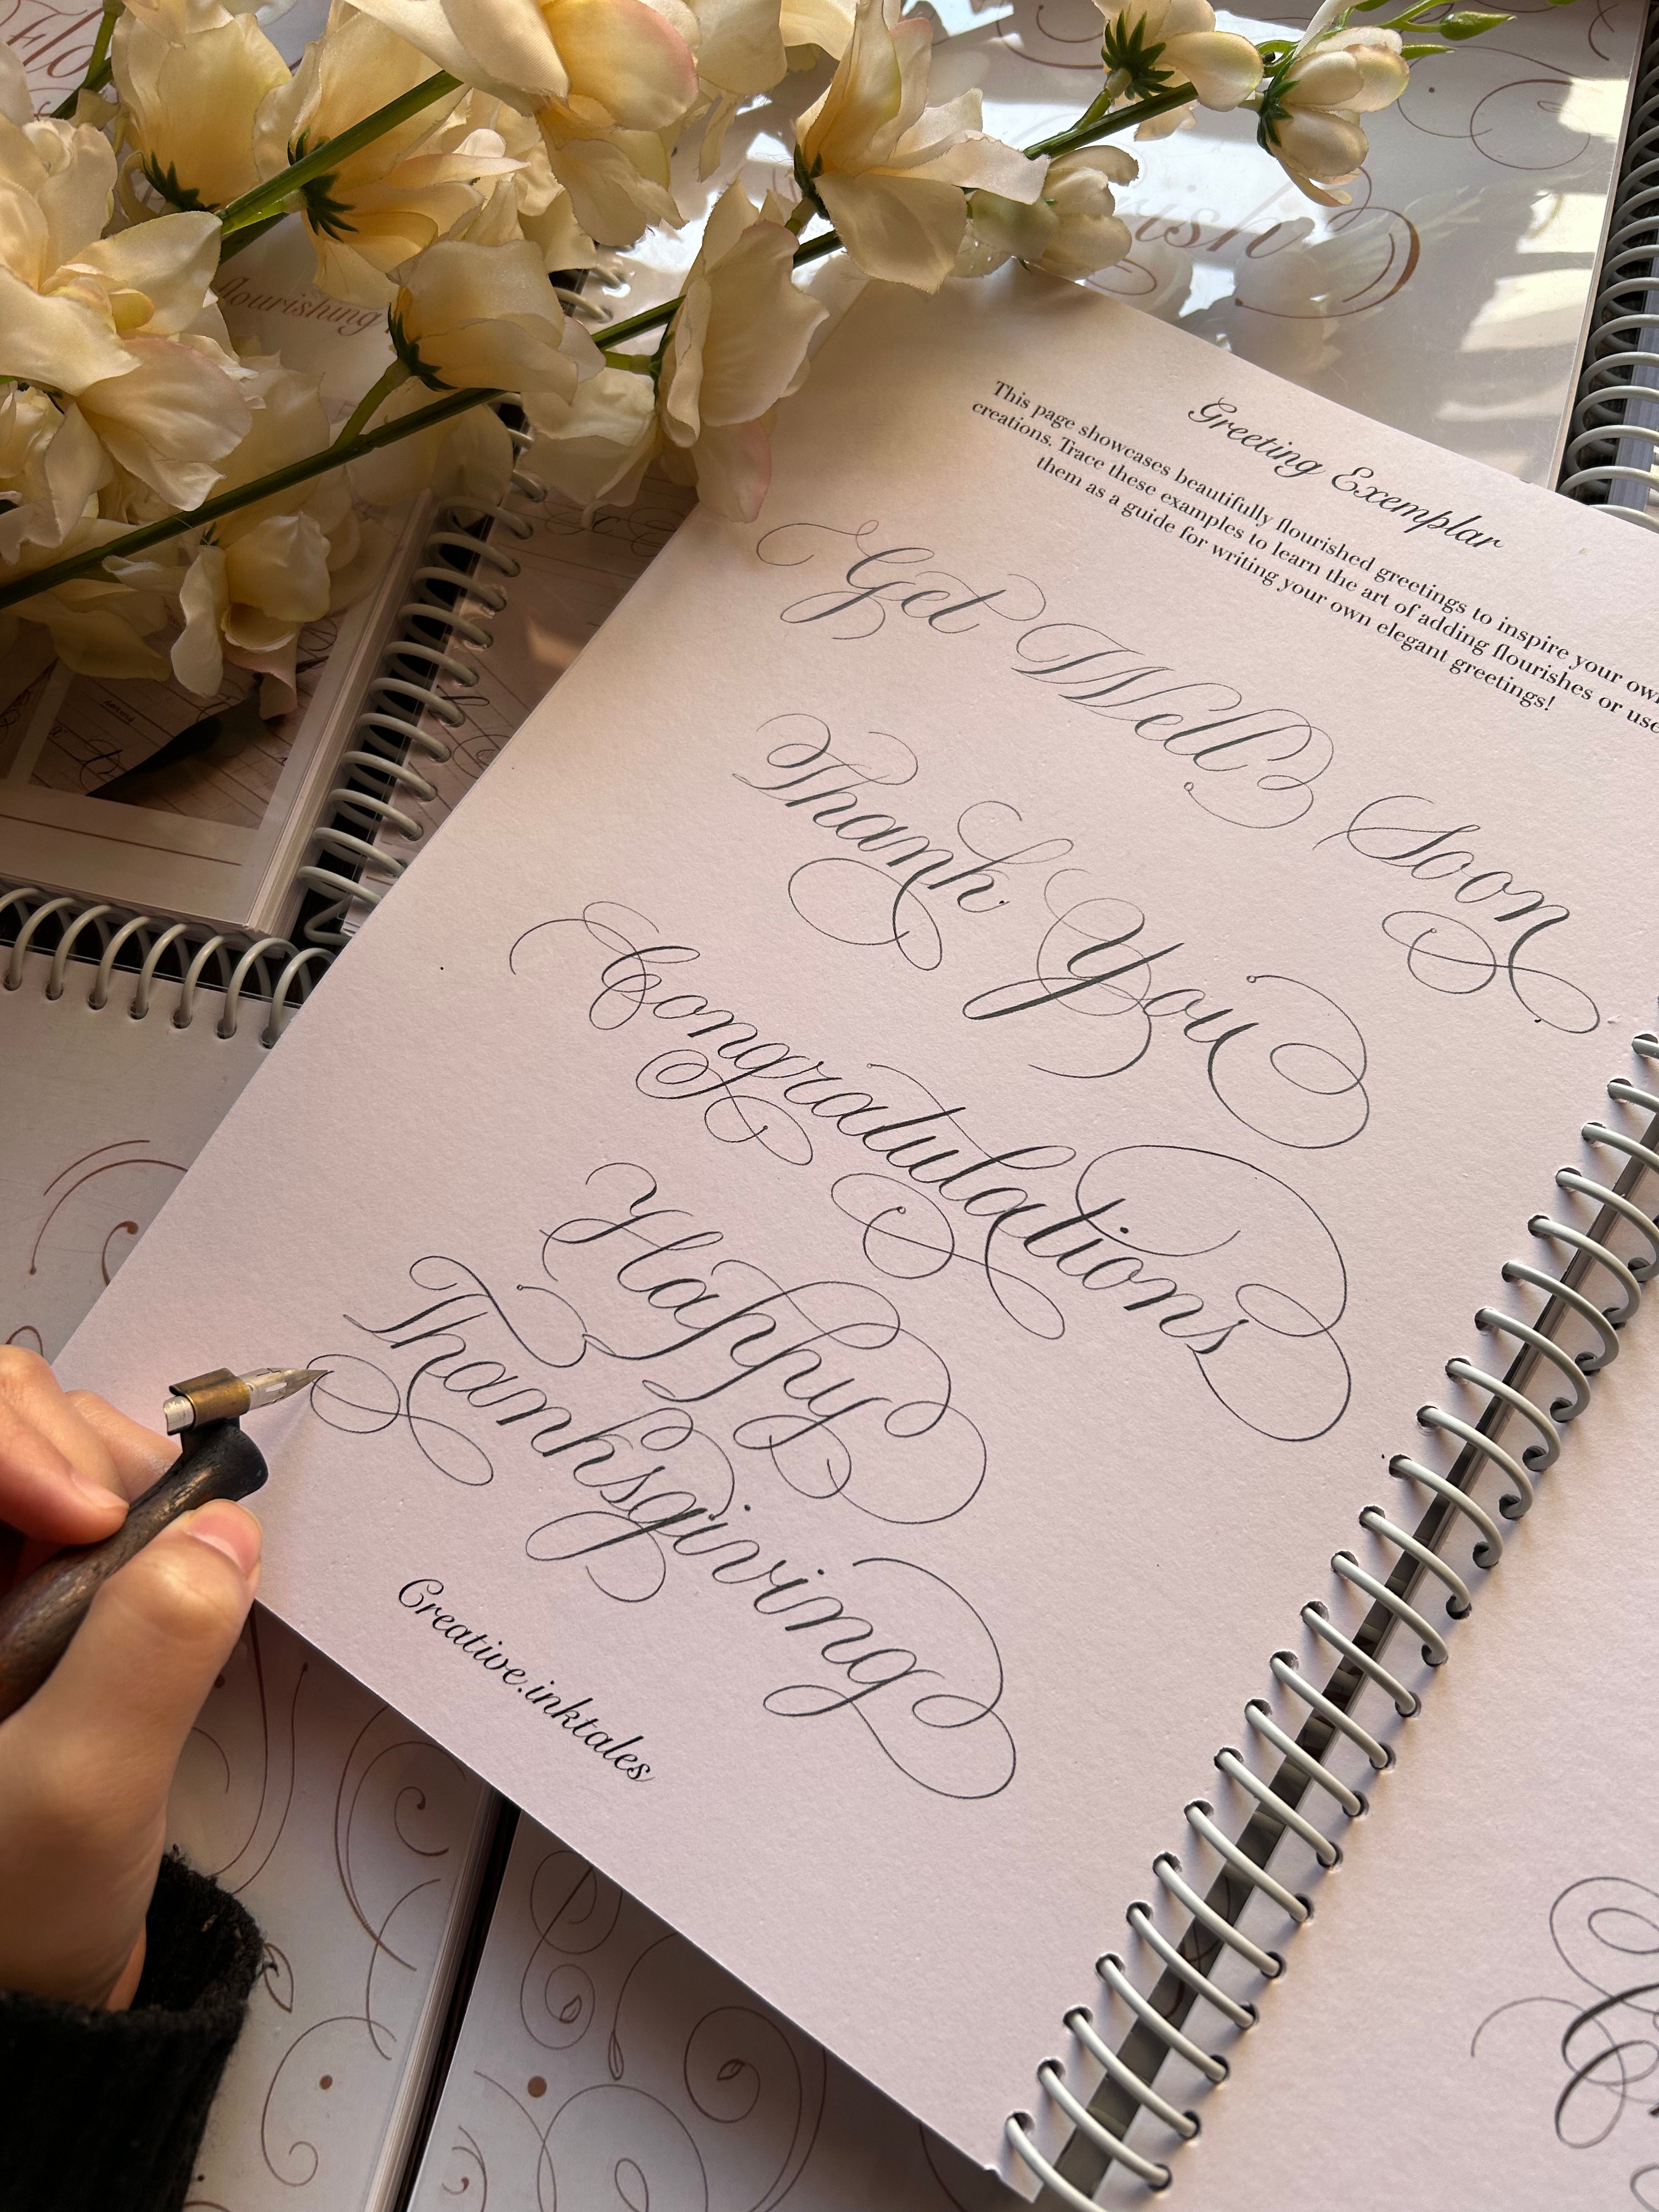 Flo
flourishing
rish
Greeting Exemplar
This page showcases beautifully flourished greetings to inspire your own
creations. Trace these examples to learn the art of adding flourishes or use
them as a guide for writing your own elegant greetings!
Get Well Soon
Thank You
Congratulations
Happy
Thanksgiving
Creative.inktales